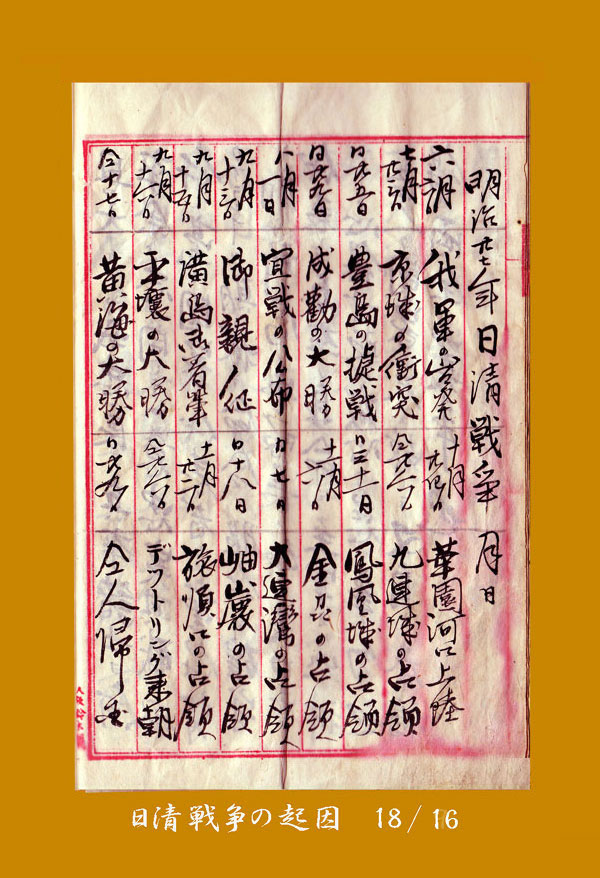 明治廿七年日清戦争 月日
六月 我軍の出発
七月廿三日 京城の衝突
日廿五日 豊島の捷戦
日廿九日 成歡の大勝
八月一日 宣戦の公布
九月十三日 御親征
九月十五日 廣島御着輦
九月十六日 平壌の大勝
仝十七日 黄海の大勝
十月廿四日 華園河口上陸
仝廿六日 九連城の占領
日三十一日 鳳凰城の占領
十一月六日 金州の占領
日七日 大連灣の占領
日十八日 岫巖の占領
十一月廿二日 旅順口の占領
仝廿六日 デツトリング来朝
日廿九日 仝人帰国
日清戦争の起因 18/16